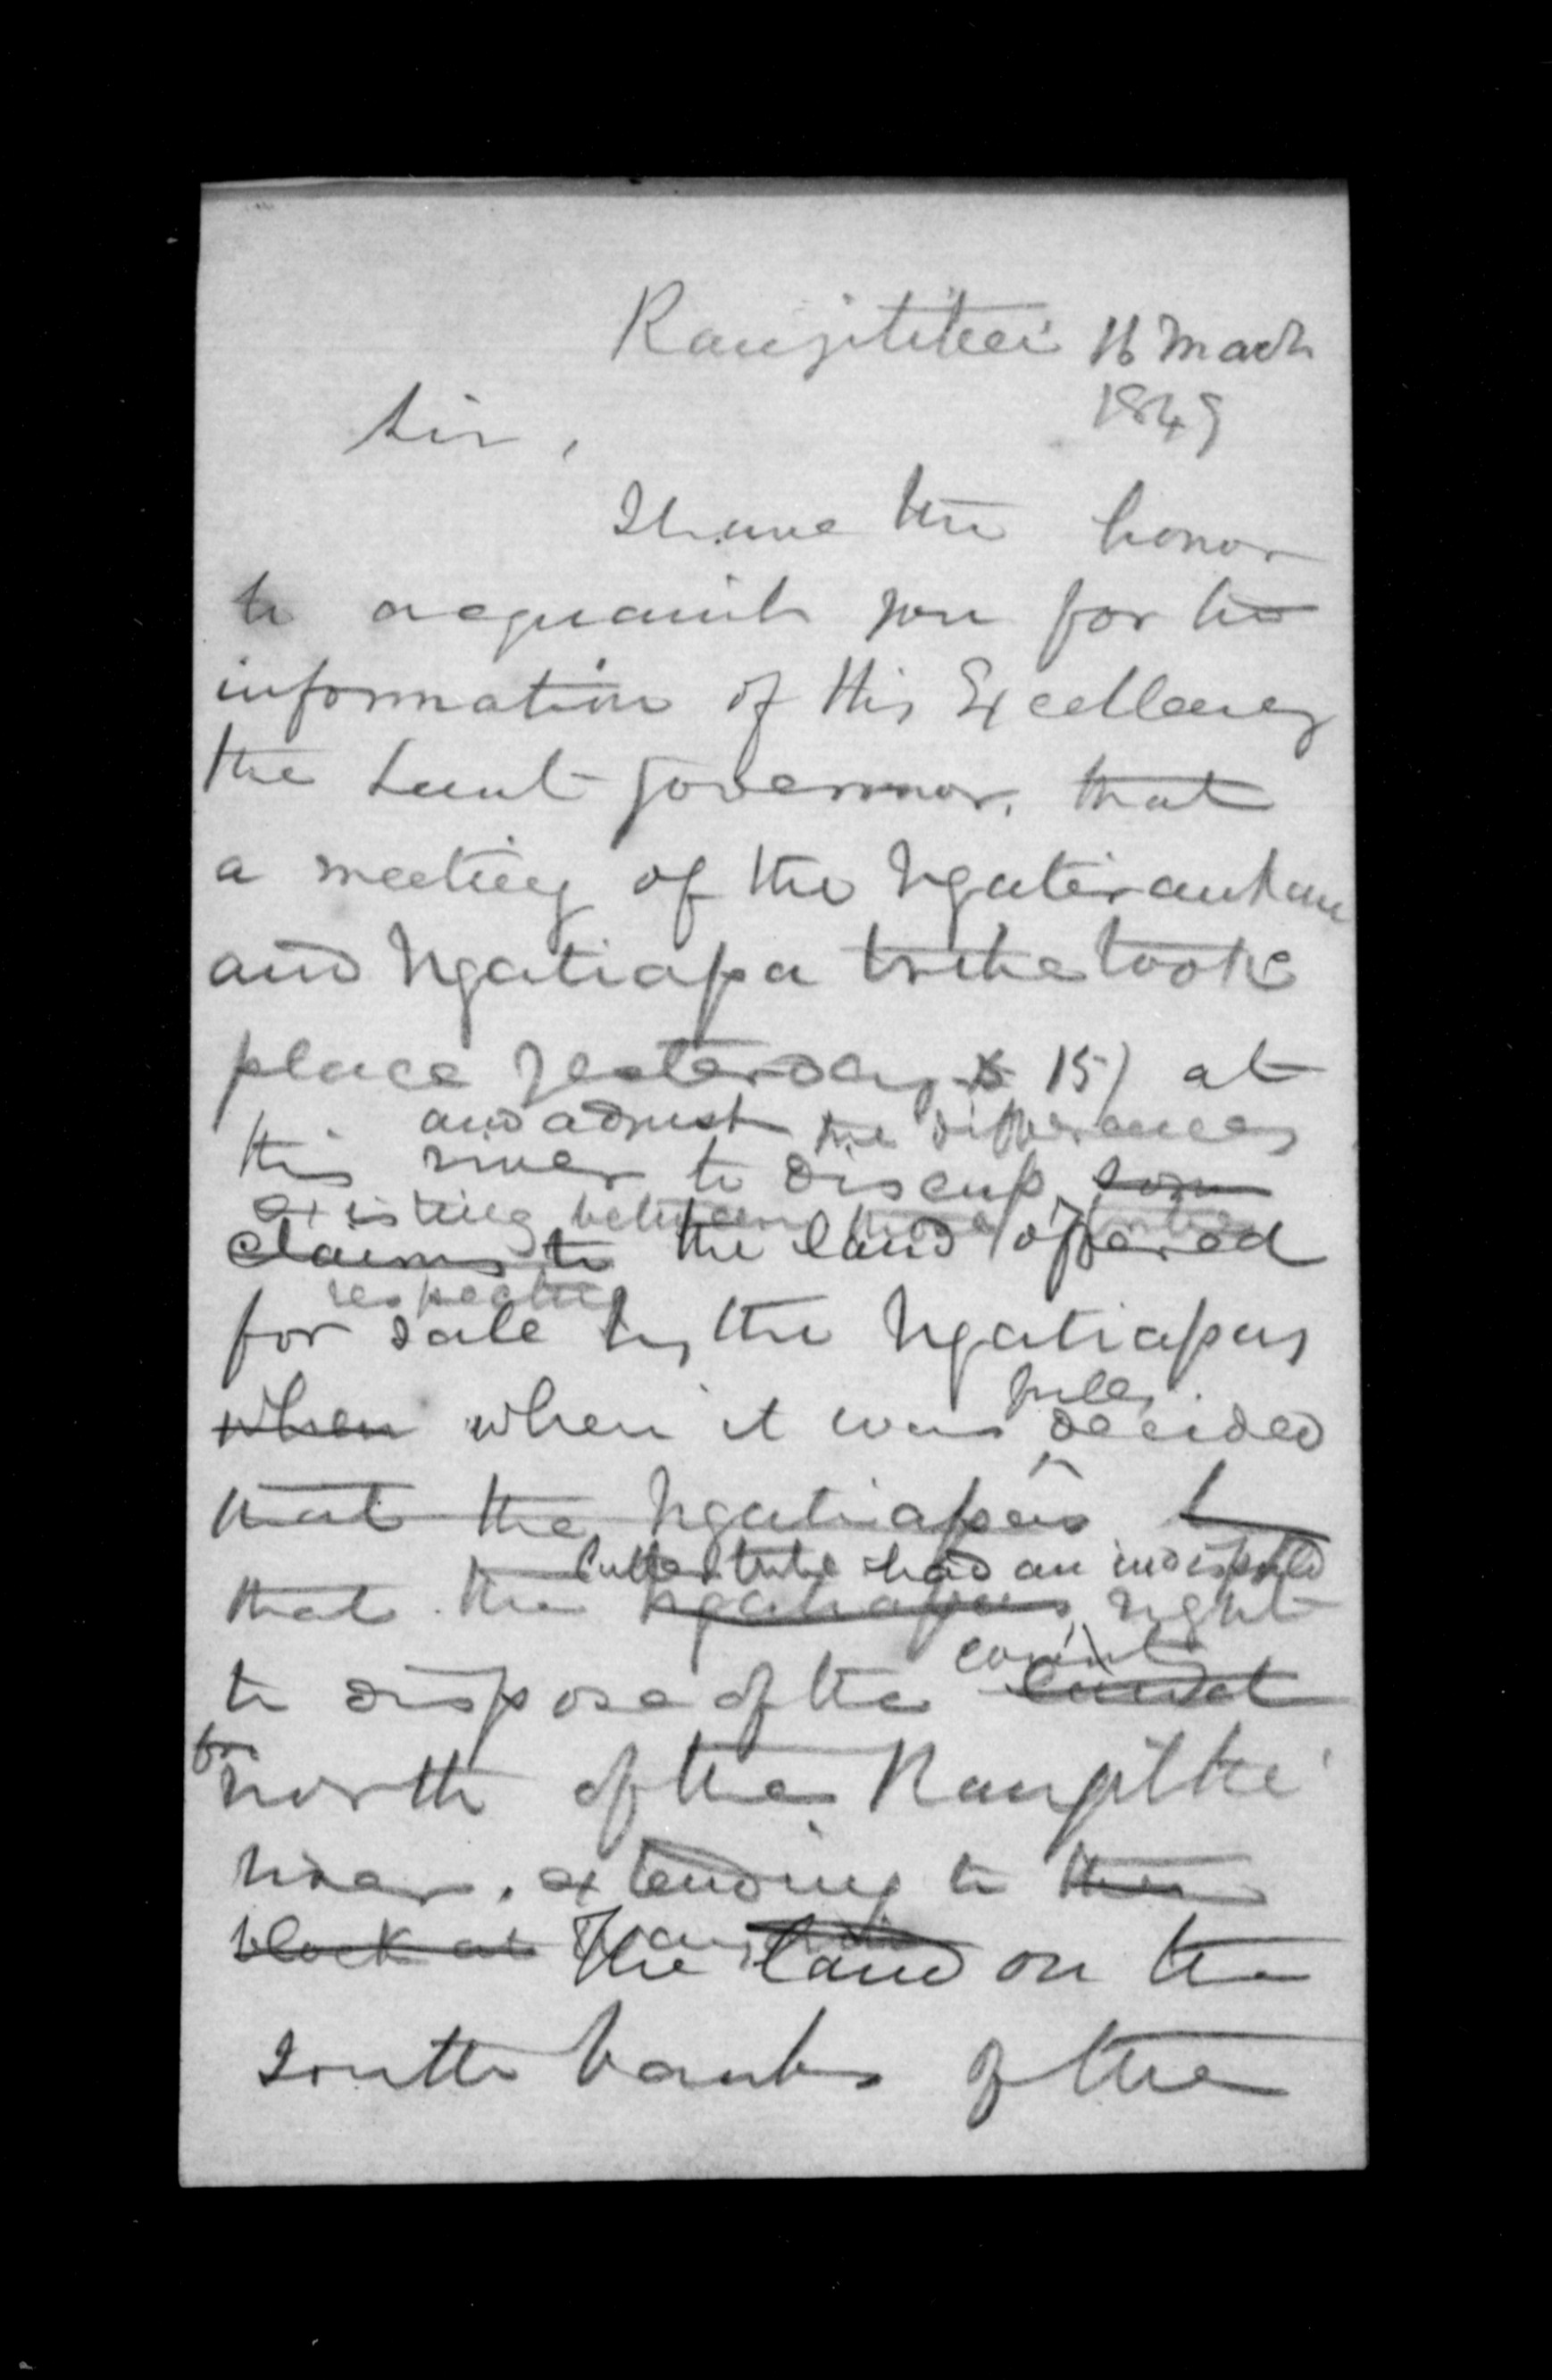 Rangitikei 16 March
1849
Sir,
I have the honor
to acquaint you for the
information of His Excellency
the Lieut Governor, that
a meeting of the Ngatiraukau
and Ngatiapa tribe took
place yesterday 15) at
and adjust the differences
this river to discuss some
existing between those
claims to the land offered
respecting
for sale by the Ngatiapas
fully
when when it was decided
that the Ngatiapas
latter tribe had an indisputed
that the Ngatiapas right
to dispose of the
country
north of the Rangitikei
river, extending to their
block at
the land on the
South banks of the